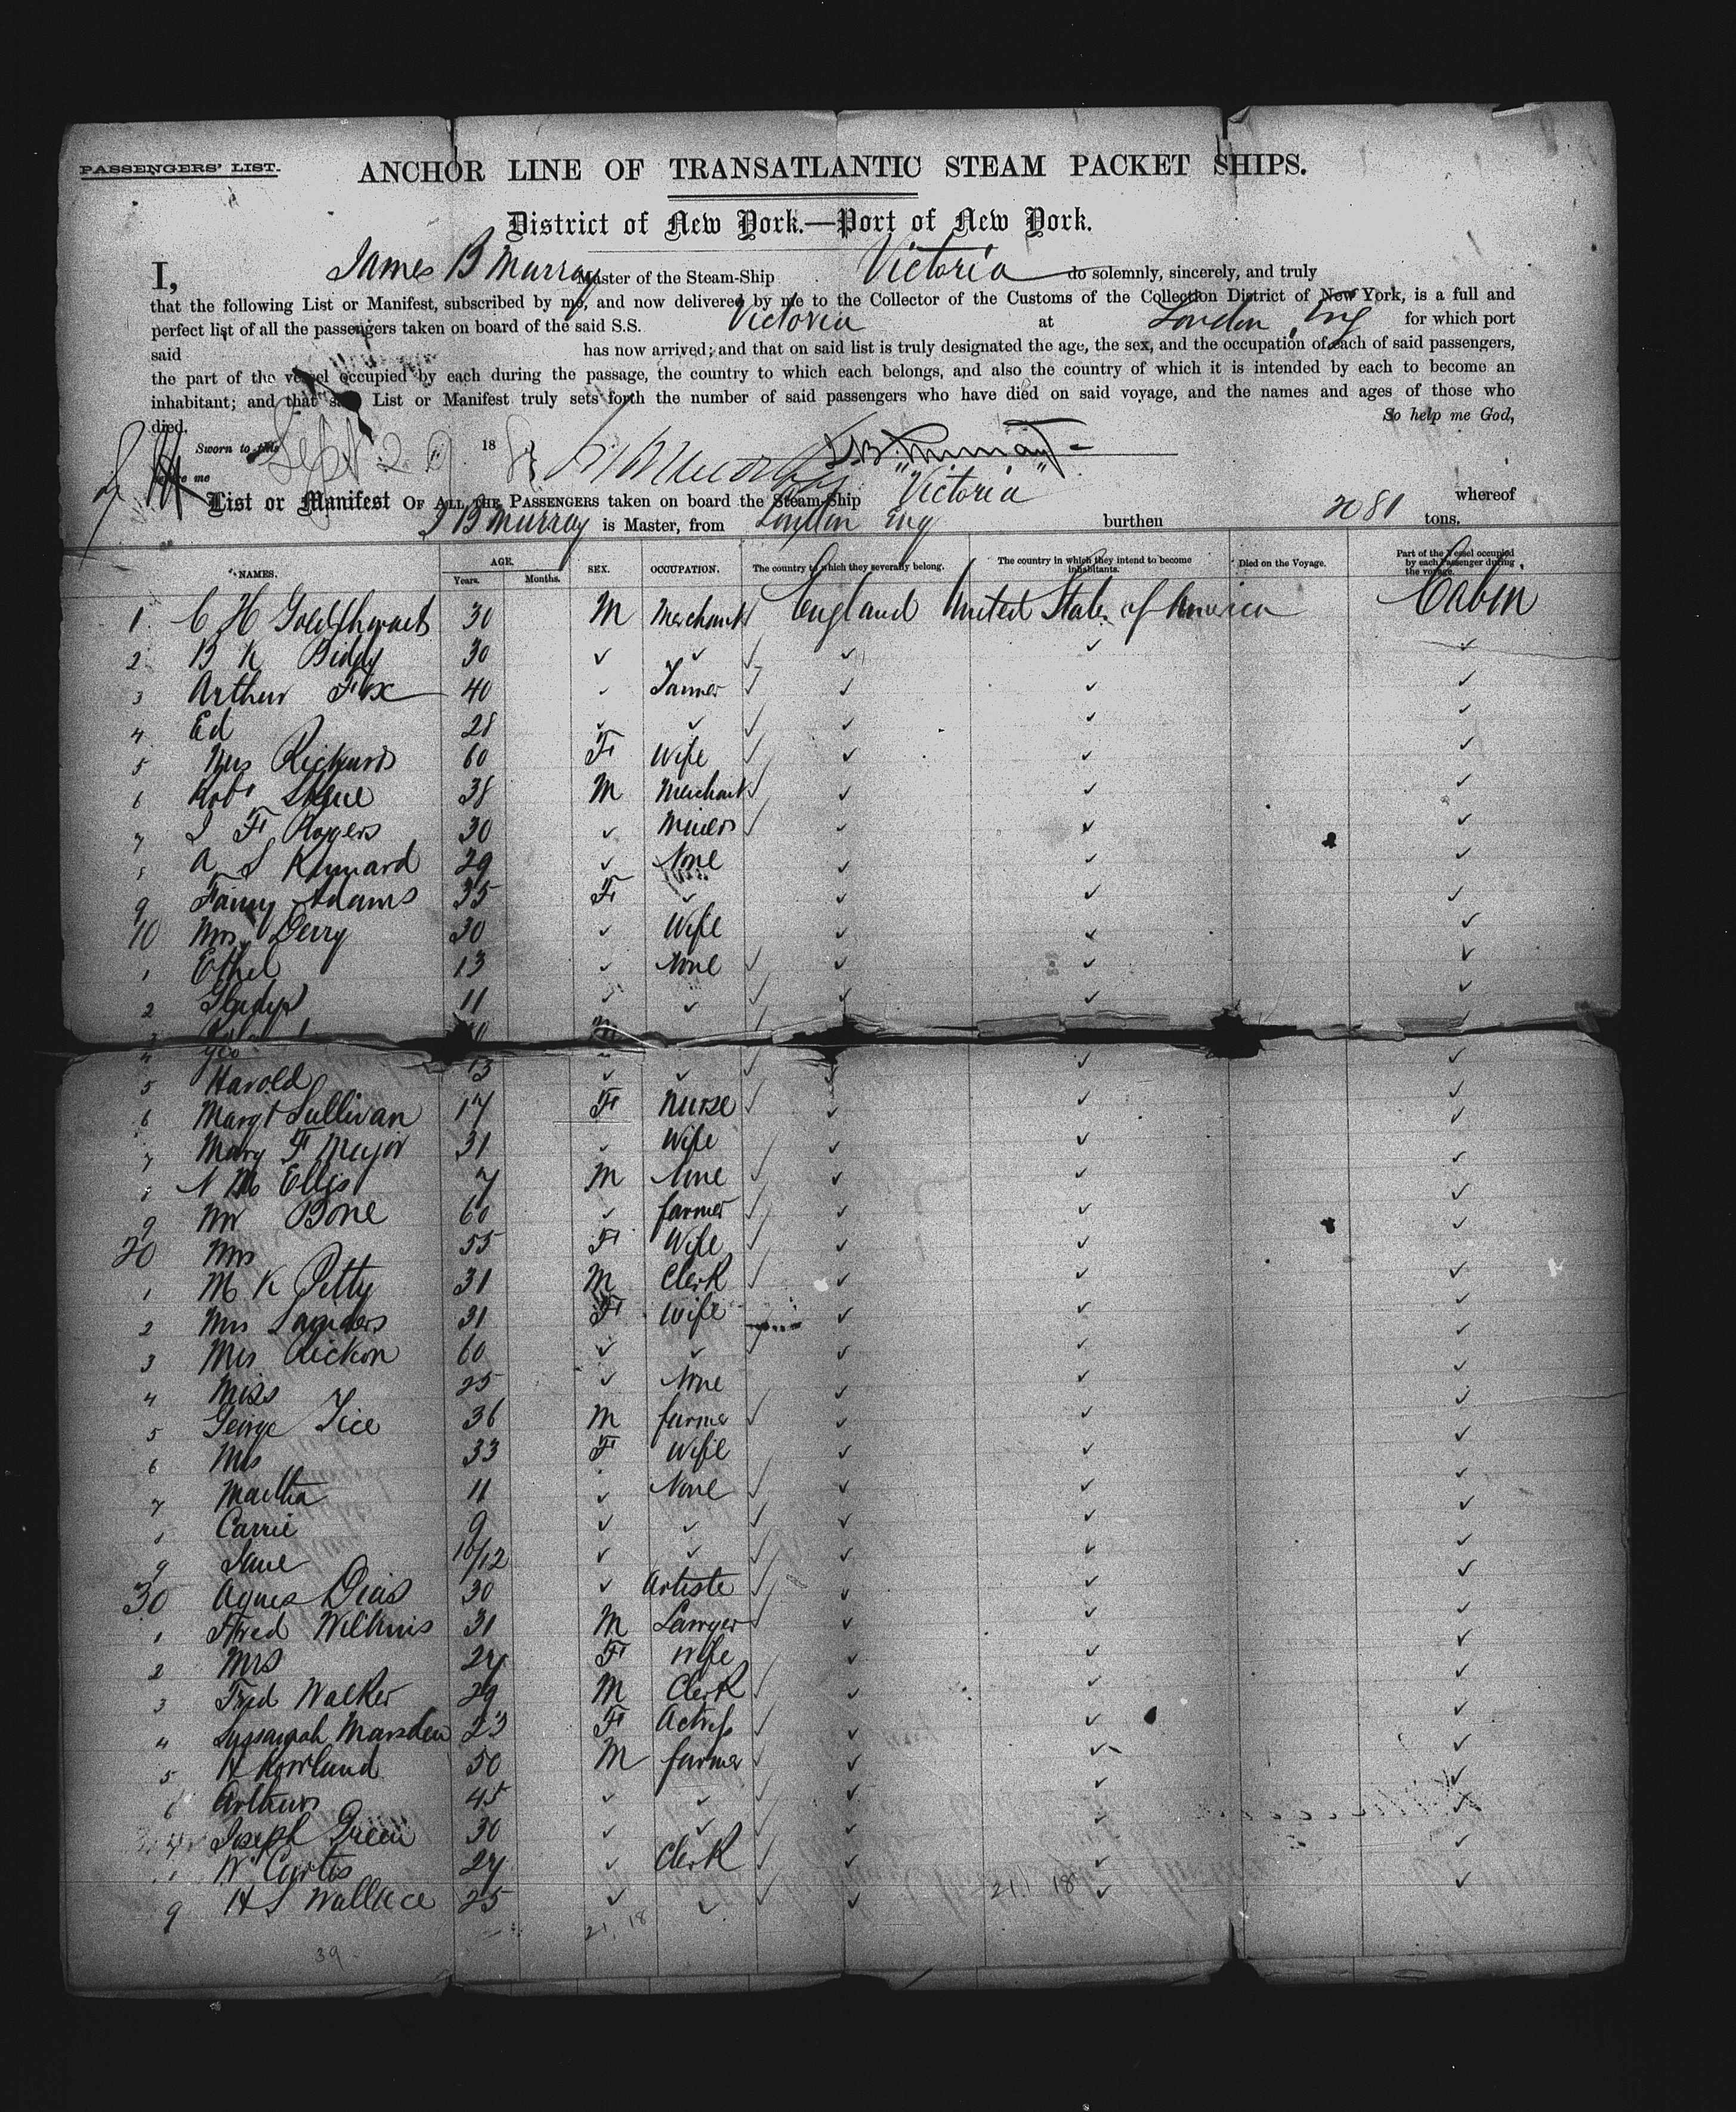 PASSENGERS' LIST.
ANCHOR LINE OF TRANSATLANTIC STEAM PACKET SHIPS.
District of New York.—Port of New York.
I, James B Murray Master of the Steam-Ship Victoria do solemnly, sincerely, and truly
that the following List or Manifest, subscribed by me, and now delivered by me to the Collector of the Customs of the Collection District of New York, is a full and
perfect list of all the passengers taken on board of the said S.S. Victoria at London, Eng for which port
said has now arrived; and that on said list is truly designated the age, the sex, and the occupation of each of said passengers,
the part of the vessel occupied by each during the passage, the country to which each belongs, and also the country of which it is intended by each to become an
inhabitant; and that said List or Manifest truly sets forth the number of said passengers who have died on said voyage, and the names and ages of those who
died. So help me God,
Sworn to this Sept 29 18
before me
List or Manifest OF ALL THE PASSENGERS taken on board the Steam-Ship "Victoria" whereof
J B Murray is Master, from London Eng burthen 2081 tons.
NAMES. AGE. Years. Months. SEX. OCCUPATION. The country to which they severally belong. The country in which they intend to become inhabitants. Died on the Voyage. Part of the Vessel occupied by each Passenger during the voyage.
1 C H 30 M Merchant England United States of America Cabin
2 B K 30 ✓ ✓ ✓ ✓ ✓
3 Arthur Fox 40 ✓ ✓ ✓ ✓
4 Ed 28 ✓ ✓ ✓ ✓ ✓
5 Mrs Rickards 60 F Wife ✓ ✓ ✓
6 Robt 38 M Merchant ✓ ✓ ✓
7 F Rogers 30 ✓ ✓ ✓ ✓
8 A S 29 ✓ None ✓ ✓ ✓
9 Fanny Adams 35 F ✓ ✓ ✓ ✓
10 Mrs 30 ✓ Wife ✓ ✓ ✓
1 Ethel 13 ✓ None ✓ ✓ ✓
2 Gladys 11 ✓ ✓ ✓ ✓ ✓
3
4 Geo
5 Harold 13 ✓ ✓ ✓ ✓ ✓
6 Margt Sullivan 17 F Nurse ✓ ✓ ✓
7 Mary F Major 31 ✓ Wife ✓ ✓ ✓
8 Ellis 7 M None ✓ ✓ ✓
9 Mr Bone 60 ✓ farmer ✓ ✓ ✓
20 Mrs 55 F Wife ✓ ✓ ✓
1 M K Petty 31 M Clerk ✓ ✓ ✓
2 Mrs 31 F Wife ✓ ✓ ✓
3 Mrs 60 ✓ ✓ ✓ ✓ ✓
4 Miss 25 ✓ None ✓ ✓ ✓
5 George Tice 36 M farmer ✓ ✓ ✓
6 Mrs 33 F Wife ✓ ✓ ✓
7 Martha 11 ✓ None ✓ ✓ ✓
8 Carrie 9 ✓ ✓ ✓ ✓ ✓
9 Jane 10/12 ✓ ✓ ✓ ✓ ✓
30 Agnes Dias 30 ✓ Artiste ✓ ✓ ✓
1 Fred Wilkins 31 M Lawyer ✓ ✓ ✓
2 Mrs 24 F Wife ✓ ✓ ✓
3 Fred Walker 29 M Clerk ✓ ✓ ✓
4 Marsden 23 F Actress ✓ ✓ ✓
5 H Rowland 50 M farmer ✓ ✓ ✓
6 Arthur 45 ✓ ✓ ✓ ✓ ✓
7 Joseph Green 30 ✓ ✓ ✓ ✓ ✓
8 W Curtis 24 ✓ Clerk ✓ ✓ ✓
9 H S Wallace 25 ✓ ✓ ✓ ✓ ✓
39 21 18 211 18